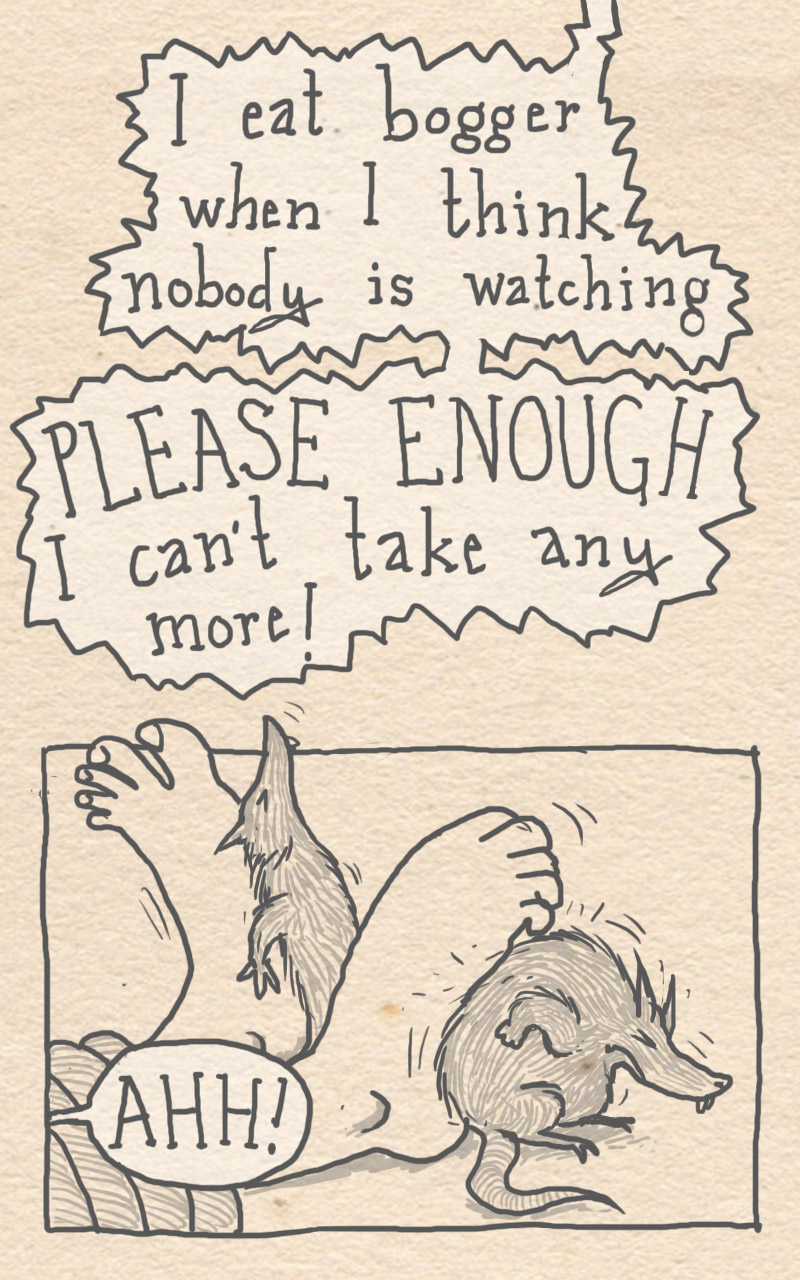 I eat bogger
when I think
nobody is watching
PLEASE ENOUGH
I can't take any
more!
AHH!